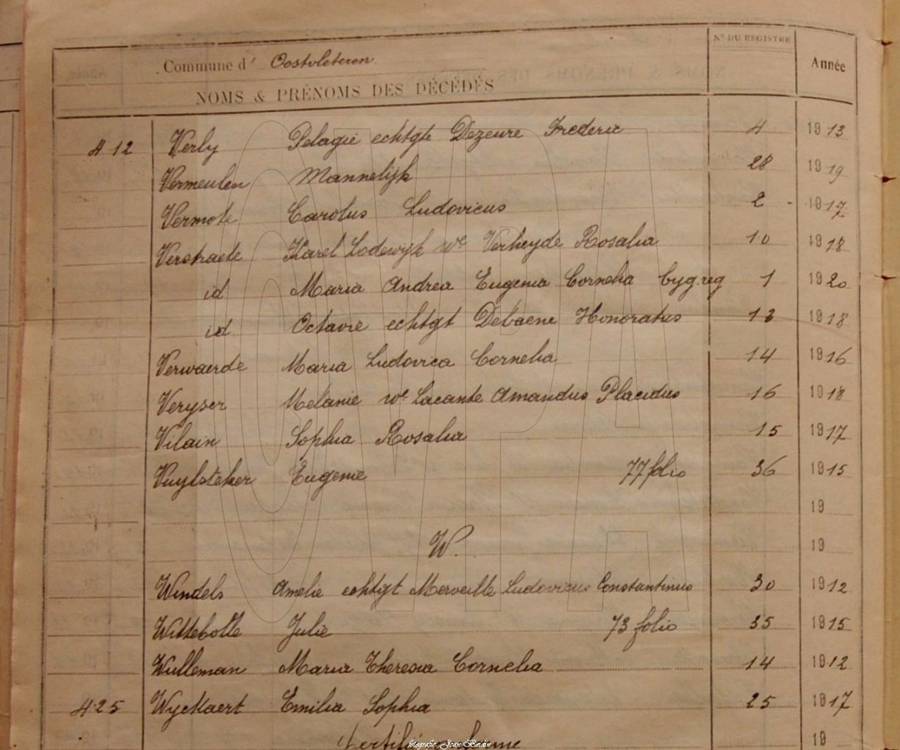 Nº DU REGISTRE
Commune d' Oostvleteren Année
NOMS & PRÉNOMS DES DÉCÉDÉS
412 Verly Pelagie echtgte Dezeure Frederic 4 1913
Vermeulen Mannelijk 28 1919
Vermote Carolus Ludovicus 2 1917
Verstraete Karel Lodewijk we Verheyde Rosalia 10 1918
id Maria Andrea Eugenia Cornelia byg.reg 1 1920
id Octavie echtgt Debaene Honoratus 12 1918
Verwaerde Maria Ludovica Cornelia 14 1916
Veryser Melanie we Lacante Amandus Placidus 16 1918
Vilain Sophia Rosalia 15 1917
Vuylsteker Eugenie 77 folio 36 1915
19
W. 19
Windels Amelie echtgt Merveille Ludovicus Constantinus 30 1912
Wittebolle Julie 73 folio 35 1915
Wulleman Maria Theresia Cornelia 14 1912
425 Wyckaert Emilia Sophia 25 1917
19